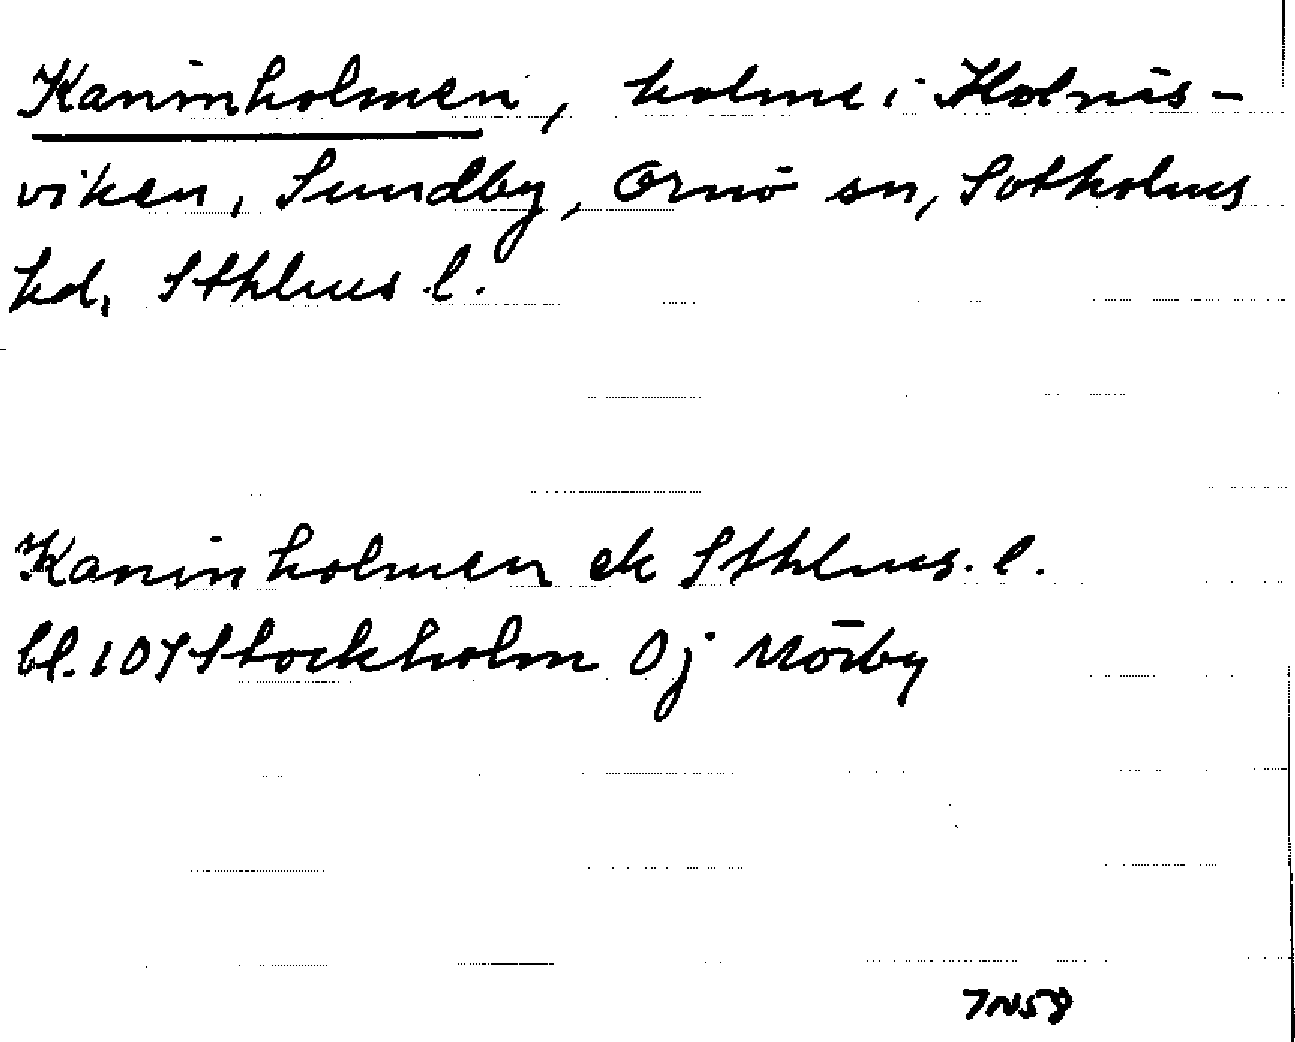 Kaninholmen, holme i Holnäs-
viken, Sundby, Ornö sn, Sotholms
hd, Sthlms l.
Kaninholmen ek Sthlms. l.
bl. 107 Stockholm 0j Mörby
7N58